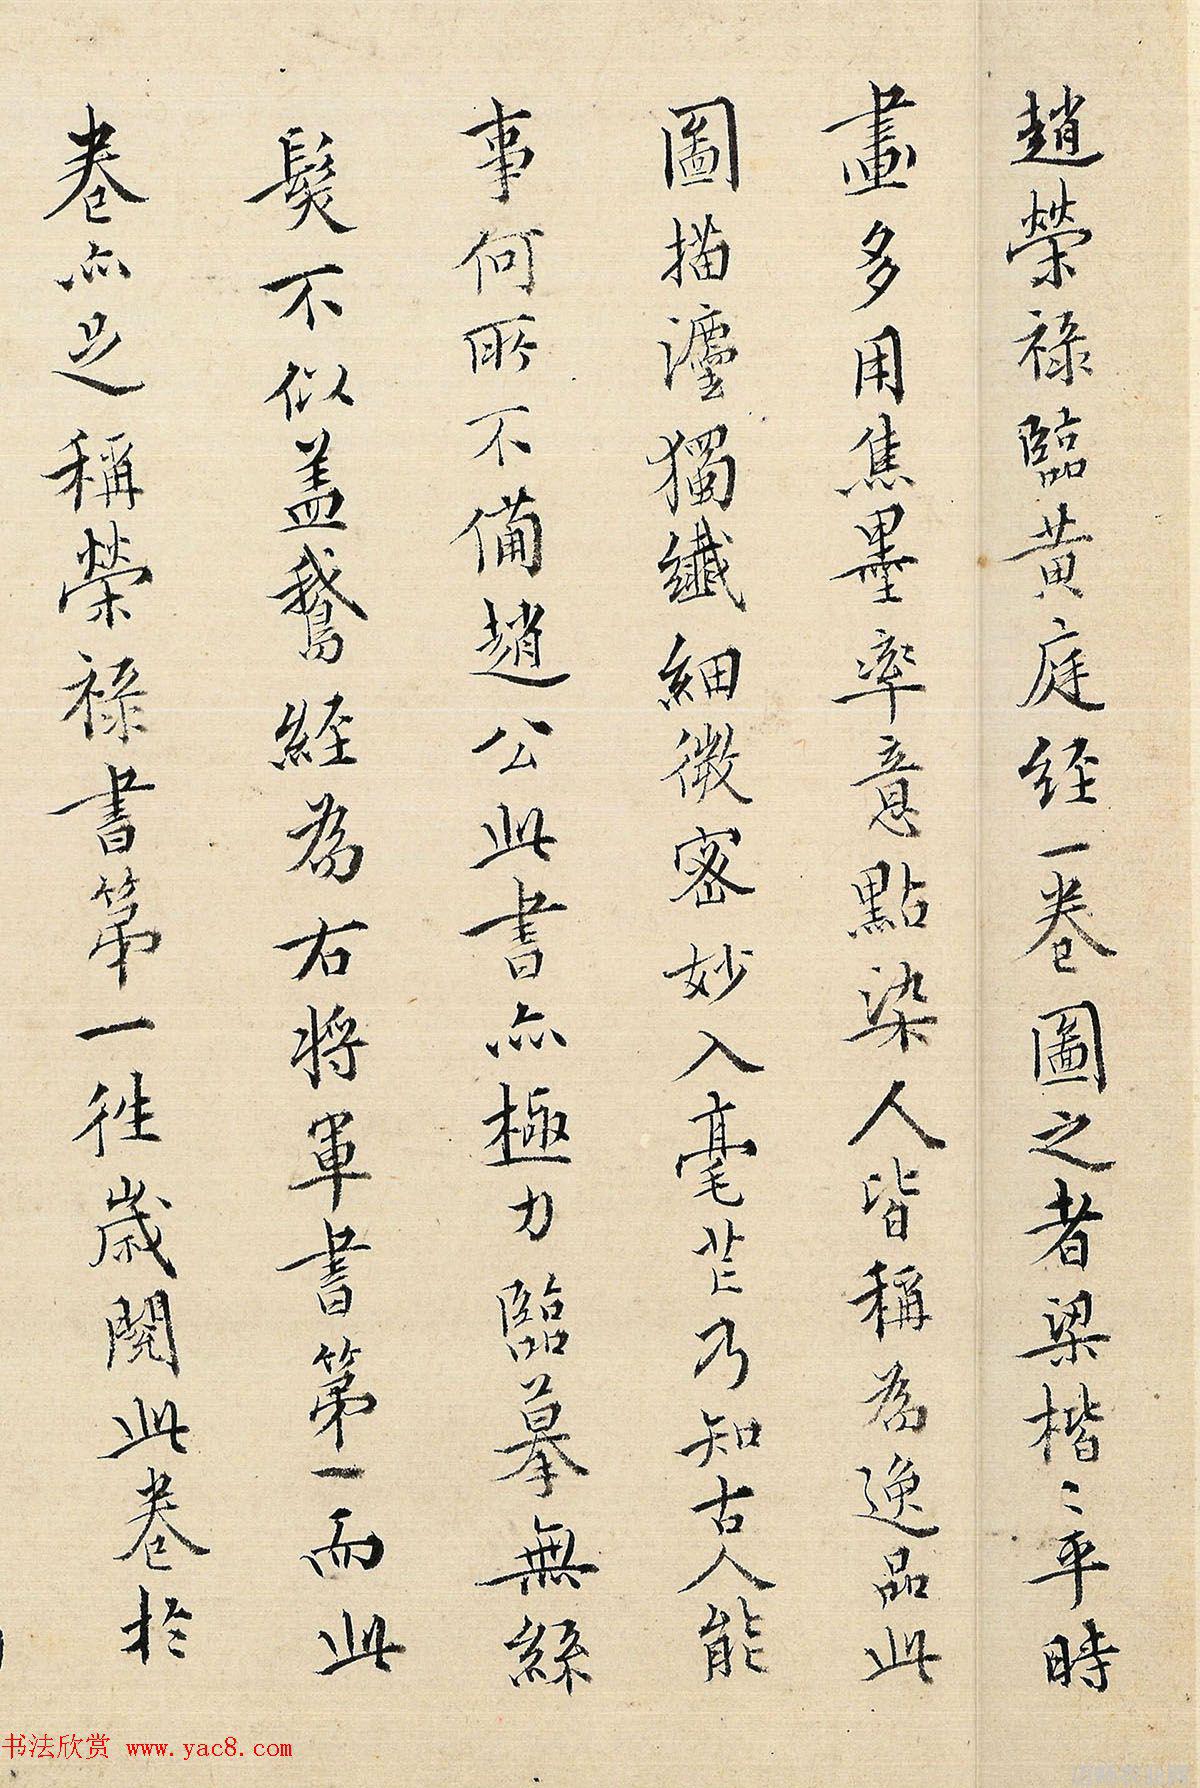 趙榮祿臨黃庭経一卷圖之者梁楷〻平時
畫多用焦墨率意點染人皆稱為逸品此
圖描瀍獨纖細微密妙入毫芒乃知古人能
事何所不備趙公此書亦極力臨摹無絲
髮不似盖鵞経為右將軍書第一而此
卷亦足稱榮祿書第一徃歲閱此卷於
书法欣赏 www.yac8.com